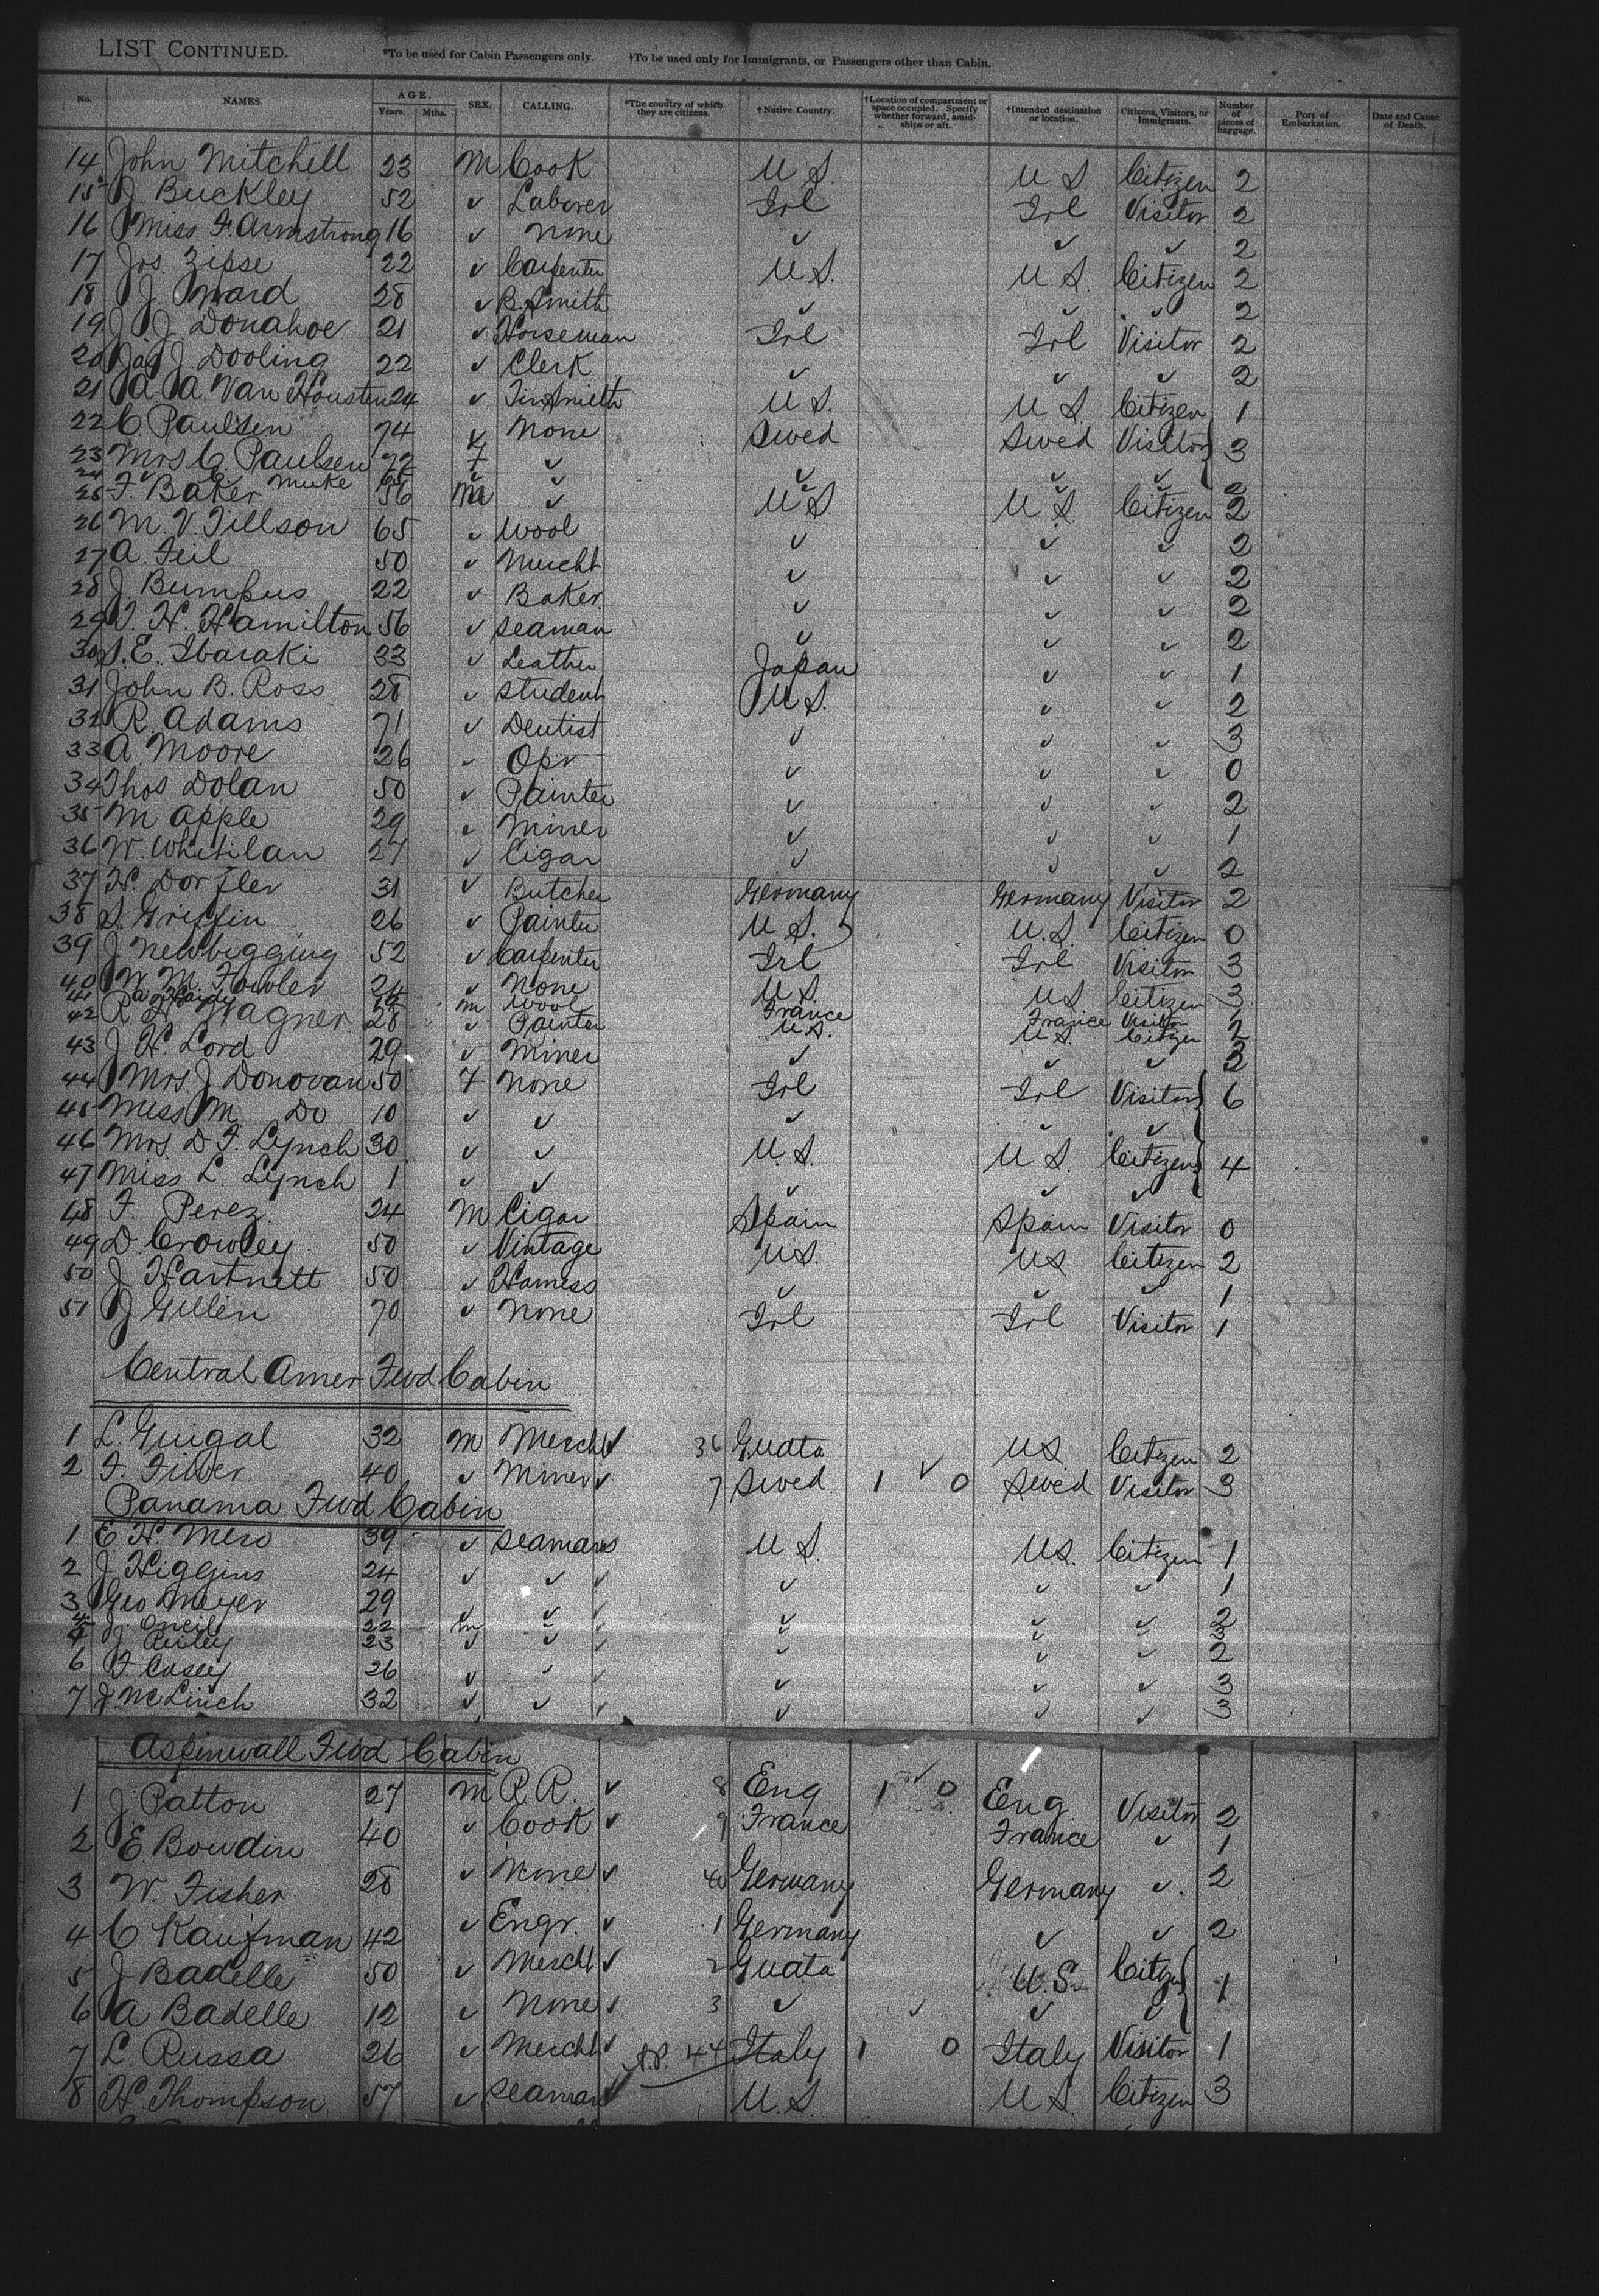 LIST CONTINUED. *To be used for Cabin Passengers only. †To be used only for Immigrants, or Passengers other than Cabin.
No. NAMES. AGE. Years. Mths. SEX. CALLING. *The country of which they are citizens. †Native Country. †Location of compartment or space occupied. Specify whether forward, amidships or aft. †Intended destination or location. Citizens, Visitors, or Immigrants. Number of pieces of baggage. Port of Embarkation. Date and Cause of Death.
14 John Mitchell 23 M Cook U S. U S. Citizen 2
15 J Buckley 52 ✓ Laborer Irl Irl Visitor 2
16 Miss F. Armstrong 16 ✓ None ✓ ✓ ✓ 2
17 Jos. Zipse 22 ✓ Carpenter U S. U S. Citizen 2
18 J. Ward 28 ✓ B. Smith ✓ ✓ ✓ 2
19 J J. Donahoe 21 ✓ Horseman Irl Irl Visitor 2
20 Jas J Dooling 22 ✓ Clerk ✓ ✓ ✓ 2
21 A. A. Van Housten 24 ✓ Tinsmith U S. U S. Citizen 1
22 C. Paulsen 74 ✓ None Swed Swed Visitor 3
23 Mrs C. Paulsen 72 F ✓ ✓ ✓ ✓
24 ✓ ✓ ✓ ✓ ✓ 2
25 F. Baker 56 M ✓ U S. U S. Citizen 2
26 M. V. Tillson 65 ✓ Wool ✓ ✓ ✓ 2
27 A. Feil 50 ✓ Mercht ✓ ✓ ✓ 2
28 J. Bumpus 22 ✓ Baker ✓ ✓ ✓ 2
29 T. H. Hamilton 56 ✓ Seaman ✓ ✓ ✓ 2
30 S. E. Ibaraki 33 ✓ Leather Japan ✓ ✓ 1
31 John B. Ross 28 ✓ Student U S. ✓ ✓ 2
32 R. Adams 71 ✓ Dentist ✓ ✓ ✓ 3
33 A. Moore 26 ✓ Opr ✓ ✓ ✓ 0
34 Thos Dolan 50 ✓ Painter ✓ ✓ ✓ 2
35 M Apple 29 ✓ Miner ✓ ✓ ✓ 1
36 W. Whitilan 27 ✓ Cigar ✓ ✓ ✓ 2
37 H. Dorfler 31 ✓ Butcher Germany Germany Visitor 2
38 S. Griffin 26 ✓ Painter U S. U.S. Citizen 0
39 J Newbigging 52 ✓ Carpenter Irl Irl Visitor 3
40 W. M. Fowler 24 ✓ None U S. U S. Citizen 3
41 m Wool France France Visitor 1
42 R. H. Wagner 28 ✓ Painter U.S. U.S. Citizen 2
43 J H. Lord 29 ✓ Miner ✓ ✓ ✓ 3
44 Mrs. J Donovan 50 F None Irl Irl Visitor 6
45 Miss M. Do 10 ✓ ✓ ✓ ✓ ✓
46 Mrs. D F. Lynch 30 ✓ ✓ U.S. U S. Citizen 4
47 Miss L. Lynch 1 ✓ ✓ ✓ ✓ ✓
48 F. Perez 24 M Cigar Spain Spain Visitor 0
49 D Crowley 50 ✓ Vintage U.S. U S Citizen 2
50 J Hartnett 50 ✓ Harness ✓ ✓ ✓ 1
51 J Gillen 70 ✓ None Irl Irl Visitor 1
Central Amer Fwd Cabin
1 L. Guigal 32 M Mercht ✓ 36 Guata U.S. Citizen 2
2 F. 40 ✓ Miner ✓ 7 Swed. 1 ✓ 0 Swed Visitor 3
Panama Fwd Cabin
1 E H. Mero 39 ✓ Seaman U S. U.S. Citizen 1
2 J Higgins 24 ✓ ✓ ✓ ✓ ✓ ✓ 1
3 Geo Meyer 29 ✓ ✓ ✓ ✓ ✓ ✓ 2
4 J. Oneil 22 m ✓ ✓ ✓ ✓ ✓ 3
5 J Riley 23 ✓ ✓ ✓ ✓ ✓ ✓ 2
6 F. Casey 26 ✓ ✓ ✓ ✓ ✓ ✓ 3
7 J McLinch 32 ✓ ✓ ✓ ✓ ✓ ✓ 3
Aspinwall Fwd Cabin
1 J Patton 27 M R.R. ✓ 8 Eng 1 ✓ 0 Eng. Visitor 2
2 E. Bowdin 40 ✓ Cook ✓ 9 France France ✓ 1
3 W. Fisher 28 ✓ None ✓ 40 Germany Germany ✓ 2
4 C Kaufman 42 ✓ Engr. ✓ 1 Germany ✓ ✓ 2
5 J Badelle 50 ✓ Mercht ✓ 2 Guata U.S. Citizen 1
6 A Badelle 12 ✓ None ✓ 3 ✓ ✓ ✓ ✓
7 L. Russa 26 ✓ Mercht ✓ 44 Italy 1 0 Italy Visitor 1
8 H. Thompson 57 ✓ Seaman ✓ U.S. U S. Citizen 3